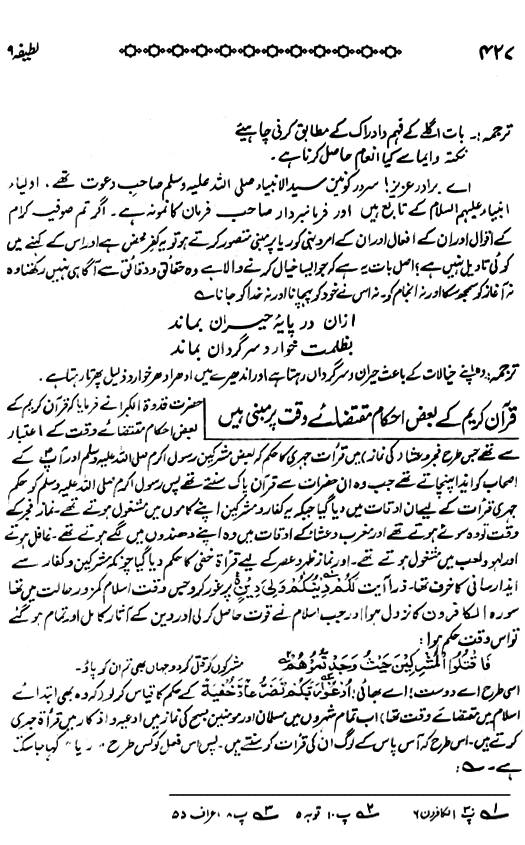 ۴۲۷ لطیفہ ۹
ترجمہ :۔ بات اگلے کے فہم و ادراک کے مطابق کرنی چاہیئے
نکتہ و ایما سے کیا انعام حاصل کرنا ہے ۔
اے برادر عزیز! سرور کونین سید الانبیاء صلی اللہ علیہ وسلم صاحب دعوت تھے ، اولیاء
انبیاء علیہم السلام کے تابع ہیں اور فرمانبردار صاحب فرمان کا نمونہ ہے ۔ اگر تم صوفیہ کرام
کے اقوال اور ان کے افعال اور ان کے امر دینی کو ریا پر مبنی متصور کرتے ہو تو یہ کفر محض ہے اور اس کے کہنے میں
کوئی تاویل نہیں ہے ؟ اصل بات یہ ہے کہ جو ایسا خیال کرنے والا ہے وہ حقائق و دقائق سے آگاہی نہیں رکھتا وہ
نہ آغاز کو سمجھ سکا اور نہ انجام کو ۔ نہ اس نے خود کو پہچانا اور نہ خدا کو جانا ے
ازان در پایۂ حیران بماند
بظلمت خوار و سرگردان بماند
ترجمہ :۔ وہ اپنے خیالات کے باعث حیران و سرگرداں رہتا ہے اور اندھیرے میں ادھر ادھر خوار و ذلیل پھرتا رہتا ہے ۔
قرآن کریم کے بعض احکام مقتضائے وقت پر مبنی ہیں
حضرت قدوۃ الکبرا نے فرمایا کہ قرآن کریم کے
بعض احکام مقتضائے وقت کے اعتبار
سے تھے جس طرح فجر و عشاء کی نماز میں قرأت جہری کا حکم کہ بعض مشرکین رسول اکرم صلی اللہ علیہ وسلم اور آپ کے
اصحاب کو ایذا پہنچاتے تھے جب وہ ان حضرات سے قرآن پاک سنتے تھے پس رسول اکرم صلی اللہ علیہ وسلم کو حکم
جہری قرأت کے لیے ان اوقات میں دیا گیا جبکہ یہ کفار و مشرکین اپنے کاموں میں مشغول ہوتے تھے ۔ نماز فجر کے
وقت تو وہ سوئے ہوتے تھے اور مغرب و عشا کے اوقات میں وہ اپنے دھندوں میں لگے ہوتے تھے ۔ غافل ہوتے
اور لہو و لعب میں مشغول ہوتے تھے ۔ اور نماز ظہر و عصر کے لیے قرأۃ خفی کا حکم دیا گیا چونکہ مشرکین و کفار سے
ایذا رسانی کا خوف تھا ۔ ذرا آیت لَكُمْ دِيْنُكُمْ وَلِيَ دِيْنِ ۱ پر غور کرو جس وقت اسلام کمزور حالت میں تھا
سورہ الکافرون کا نزول ہوا اور جب اسلام نے قوت حاصل کر لی اور دین کے آثار کامل اور تمام ہو گئے
تو اس وقت حکم ہوا :
فَاقْتُلُوا الْمُشْرِكِيْنَ حَيْثُ وَجَدْتُّمُوْهُمْ ۲ مشرکوں کو قتل کرو جہاں بھی تم ان کو پاؤ ۔
اسی طرح اے دوست ! اے بھائی ! اُدْعُوْا رَبَّكُمْ تَضَرُّعًا وَّخُفْيَةً ۳ کے حکم کا قیاس کر لو (کہ وہ بھی ابتدائے
اسلام میں مقتضائے وقت تھا) اب تمام شہروں میں مسلمان اور مومنین صبح کی نماز میں ادعیہ و اذکار میں قرأۃ جہری
کرتے ہیں ۔ اس طرح کہ آس پاس کے لوگ ان کی قرأت کو سنتے ہیں ۔ پس اس فعل کو کس طرح "ریا" کہا جا سکتا
ہے ۔
۱ پ ۳۰ الکافرون ۶ ۲ پ ۱۰ توبہ ۵ ۳ پ ۸ اعراف ۵۵